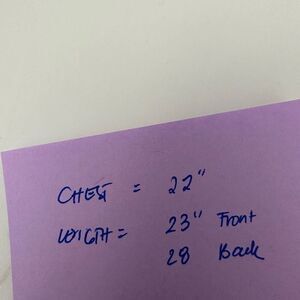 CHEST = 22"
LENGTH = 23" Front
28 Back